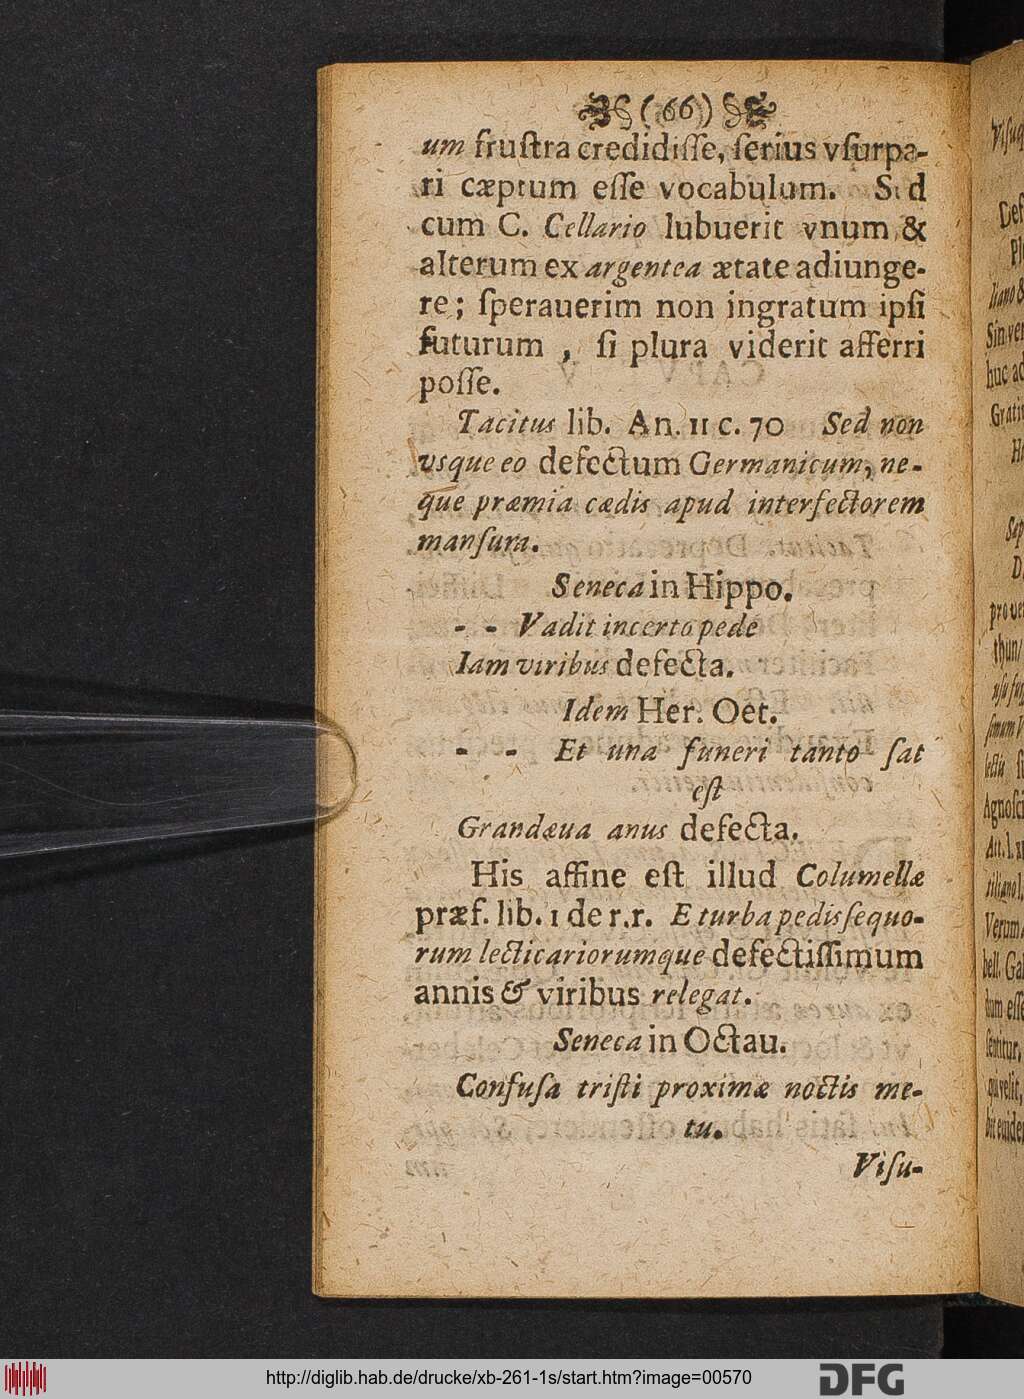 (66)
um fruſtra credidiſſe, ſerius vſurpa-
ri cæptum eſſe vocabulum. S d
cum C. Cellario lubuerit vnum &
alterum ex argentea ætate adiunge-
re; ſperauerim non ingratum ipſi
futurum, ſi plura viderit afferri
poſſe.
Tacitus lib. An. II c. 70 Sed non
vsque eo defectum Germanicum, ne-
que præmia cædis apud interfectorem
manſura.
Seneca in Hippo.
- - Vadit incerto pede
Iam viribus defecta.
Idem Her. Oet.
- - Et una funeri tanto ſat
eſt
Grandæua anus defecta.
His affine eſt illud Columellæ
præf. lib. 1 de r.r. E turba pedisſequo-
rum lecticariorumque defectiſſimum
annis & viribus relegat.
Seneca in Octau.
Confuſa triſti proximæ noctis me-
tu.
Viſu-
http://diglib.hab.de/drucke/xb-261-1s/start.htm?image=00570
DFG